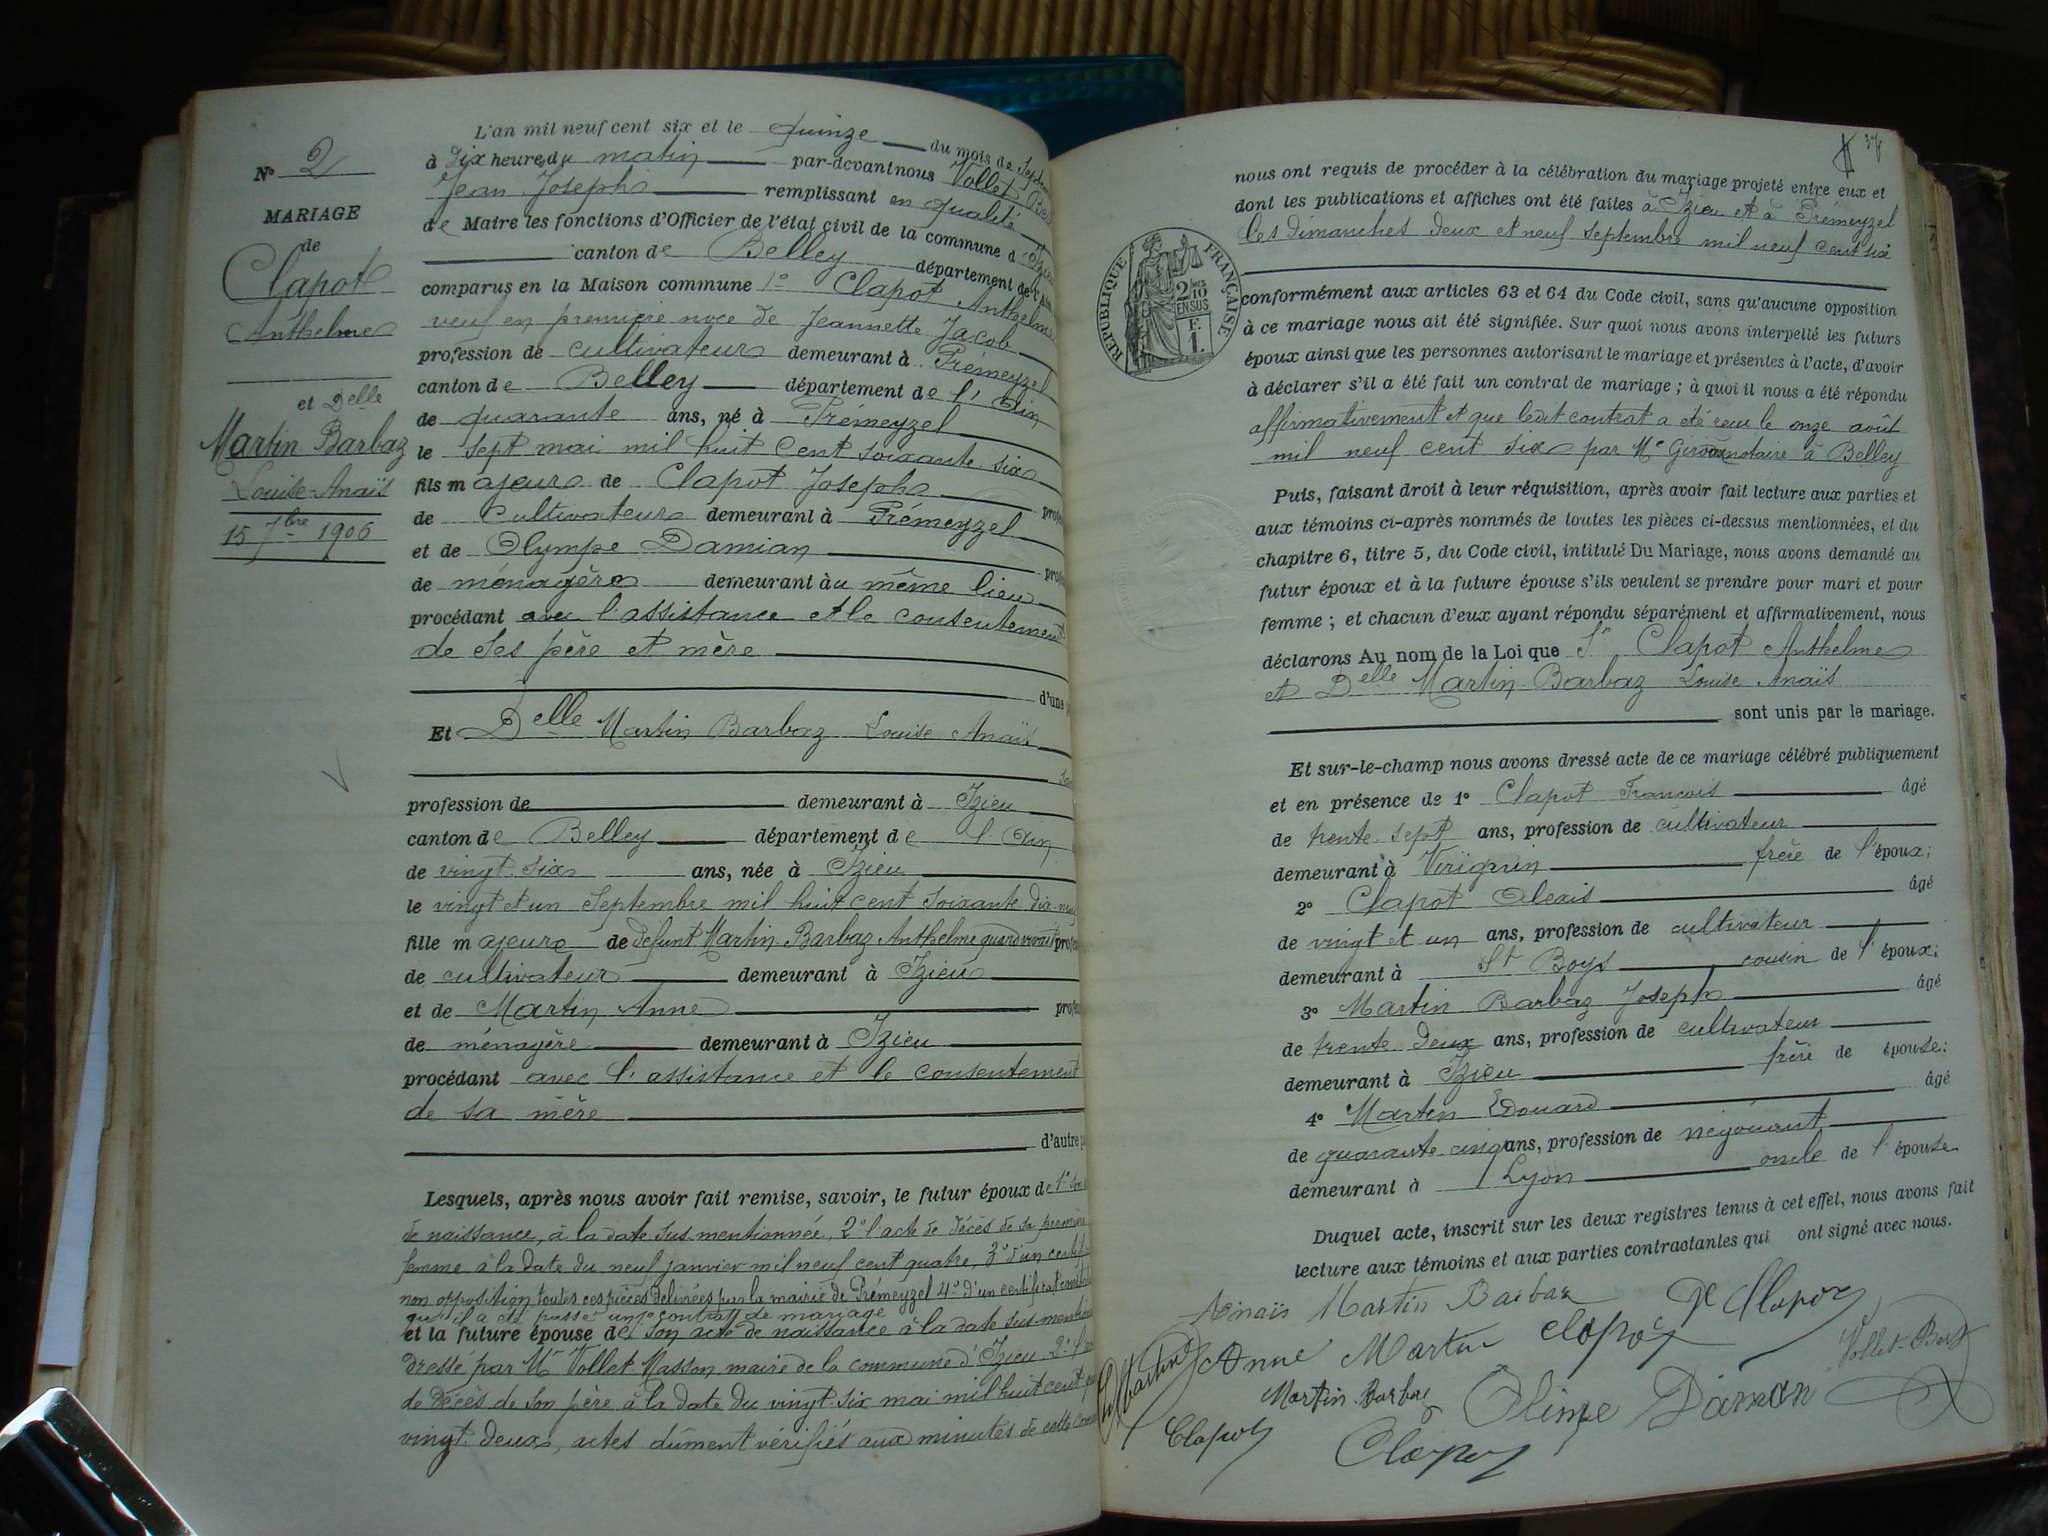 N° 2
MARIAGE
de
Clapot
Anthelme
et Delle
Martin Barbaz
Louise-Anaïs
15 7bre 1906
L'an mil neuf cent six et le quinze du mois de Septem
à dix heure du matin par-devant nous Vollet
Jean Joseph remplissant en qualité
de Maire les fonctions d'Officier de l'état civil de la commune d'Izieu
canton de Belley département de l'Ain
comparus en la Maison commune 1° Clapot Anthelme
veuf en première noce de Jeannette Jacob
profession de cultivateur demeurant à Prémeyzel
canton de Belley département de l'Ain
de quarante ans, né à Prémeyzel
le sept mai mil huit cent soixante six
fils majeur de Clapot Joseph profes
de cultivateur demeurant à Prémeyzel
et de Olympe Damian profes
de ménagère demeurant au même lieu
procédant avec l'assistance et le consentement
de ses père et mère
d'une p
Et Delle Martin Barbaz Louise Anaïs
profession de demeurant à Izieu
canton de Belley département de l'Ain
de vingt six ans, née à Izieu
le vingt et un Septembre mil huit cent soixante dix-neuf
fille majeure de défunt Martin Barbaz Anthelme quand vivait profes
de cultivateur demeurant à Izieu
et de Martin Anne profes
de ménagère demeurant à Izieu
procédant avec l'assistance et le consentement
de sa mère
d'autre p
Lesquels, après nous avoir fait remise, savoir, le futur époux de 1° son
de naissance, à la date sus mentionnée, 2° l'acte de décès de sa première
femme à la date du neuf janvier mil neuf cent quatre, 3° d'un certif
non opposition toutes ces pièces délivrées par la mairie de Prémeyzel 4° d'un certificat const
qu'il a été passé un contrat de mariage
et la future épouse de son acte de naissance à la date sus-mention
dressé par Mr Vollet Masson maire de la commune d'Izieu 2°
de décès de son père à la date du vingt six mai mil huit cent
vingt deux, actes dûment vérifiés aux minutes de cette
37
nous ont requis de procéder à la célébration du mariage projeté entre eux et
dont les publications et affiches ont été faites à Izieu et à Prémeyzel
les dimanches deux et neuf septembre mil neuf cent six
RÉPUBLIQUE FRANÇAISE
2/10
EN SUS
F.
1.
conformément aux articles 63 et 64 du Code civil, sans qu'aucune opposition
à ce mariage nous ait été signifiée. Sur quoi nous avons interpellé les futurs
époux ainsi que les personnes autorisant le mariage et présentes à l'acte, d'avoir
à déclarer s'il a été fait un contrat de mariage ; à quoi il nous a été répondu
affirmativement et que ledit contrat a été reçu le onze août
mil neuf cent six par Me notaire à Belley
Puis, faisant droit à leur réquisition, après avoir fait lecture aux parties et
aux témoins ci-après nommés de toutes les pièces ci-dessus mentionnées, et du
chapitre 6, titre 5, du Code civil, intitulé Du Mariage, nous avons demandé au
futur époux et à la future épouse s'ils veulent se prendre pour mari et pour
femme ; et chacun d'eux ayant répondu séparément et affirmativement, nous
déclarons Au nom de la Loi que Sr Clapot Anthelme
et Delle Martin-Barbaz Louise Anaïs
sont unis par le mariage.
Et sur-le-champ nous avons dressé acte de ce mariage célébré publiquement
et en présence de 1° Clapot François âgé
de trente sept ans, profession de cultivateur
demeurant à Virignin frère de l'époux;
2° Clapot Alexis âgé
de vingt et un ans, profession de cultivateur
demeurant à St Boys cousin de l'époux;
3° Martin Barbaz Joseph âgé
de trente deux ans, profession de cultivateur
demeurant à Izieu frère de épouse;
4° Martin Edouard âgé
de quarante cinq ans, profession de négociant
demeurant à Lyon oncle de l'épouse
Duquel acte, inscrit sur les deux registres tenus à cet effet, nous avons fait
lecture aux témoins et aux parties contractantes qui ont signé avec nous.
Anaïs Martin Barbaz Clapot
Martin Anne Martin Clapot Vollet-Bert
Martin Barbaz Olimpe Damian
Clapot Clapot